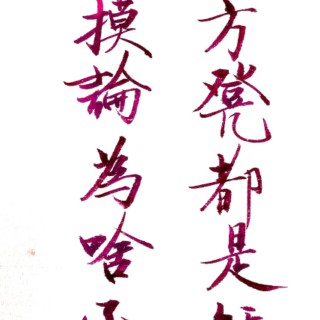 方凳都是
摸論為啥